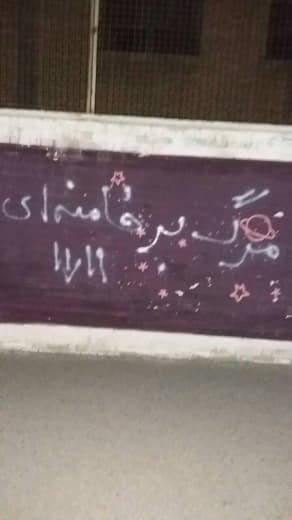 مرگ بر خامنه‌ای
۱۱/۱۹